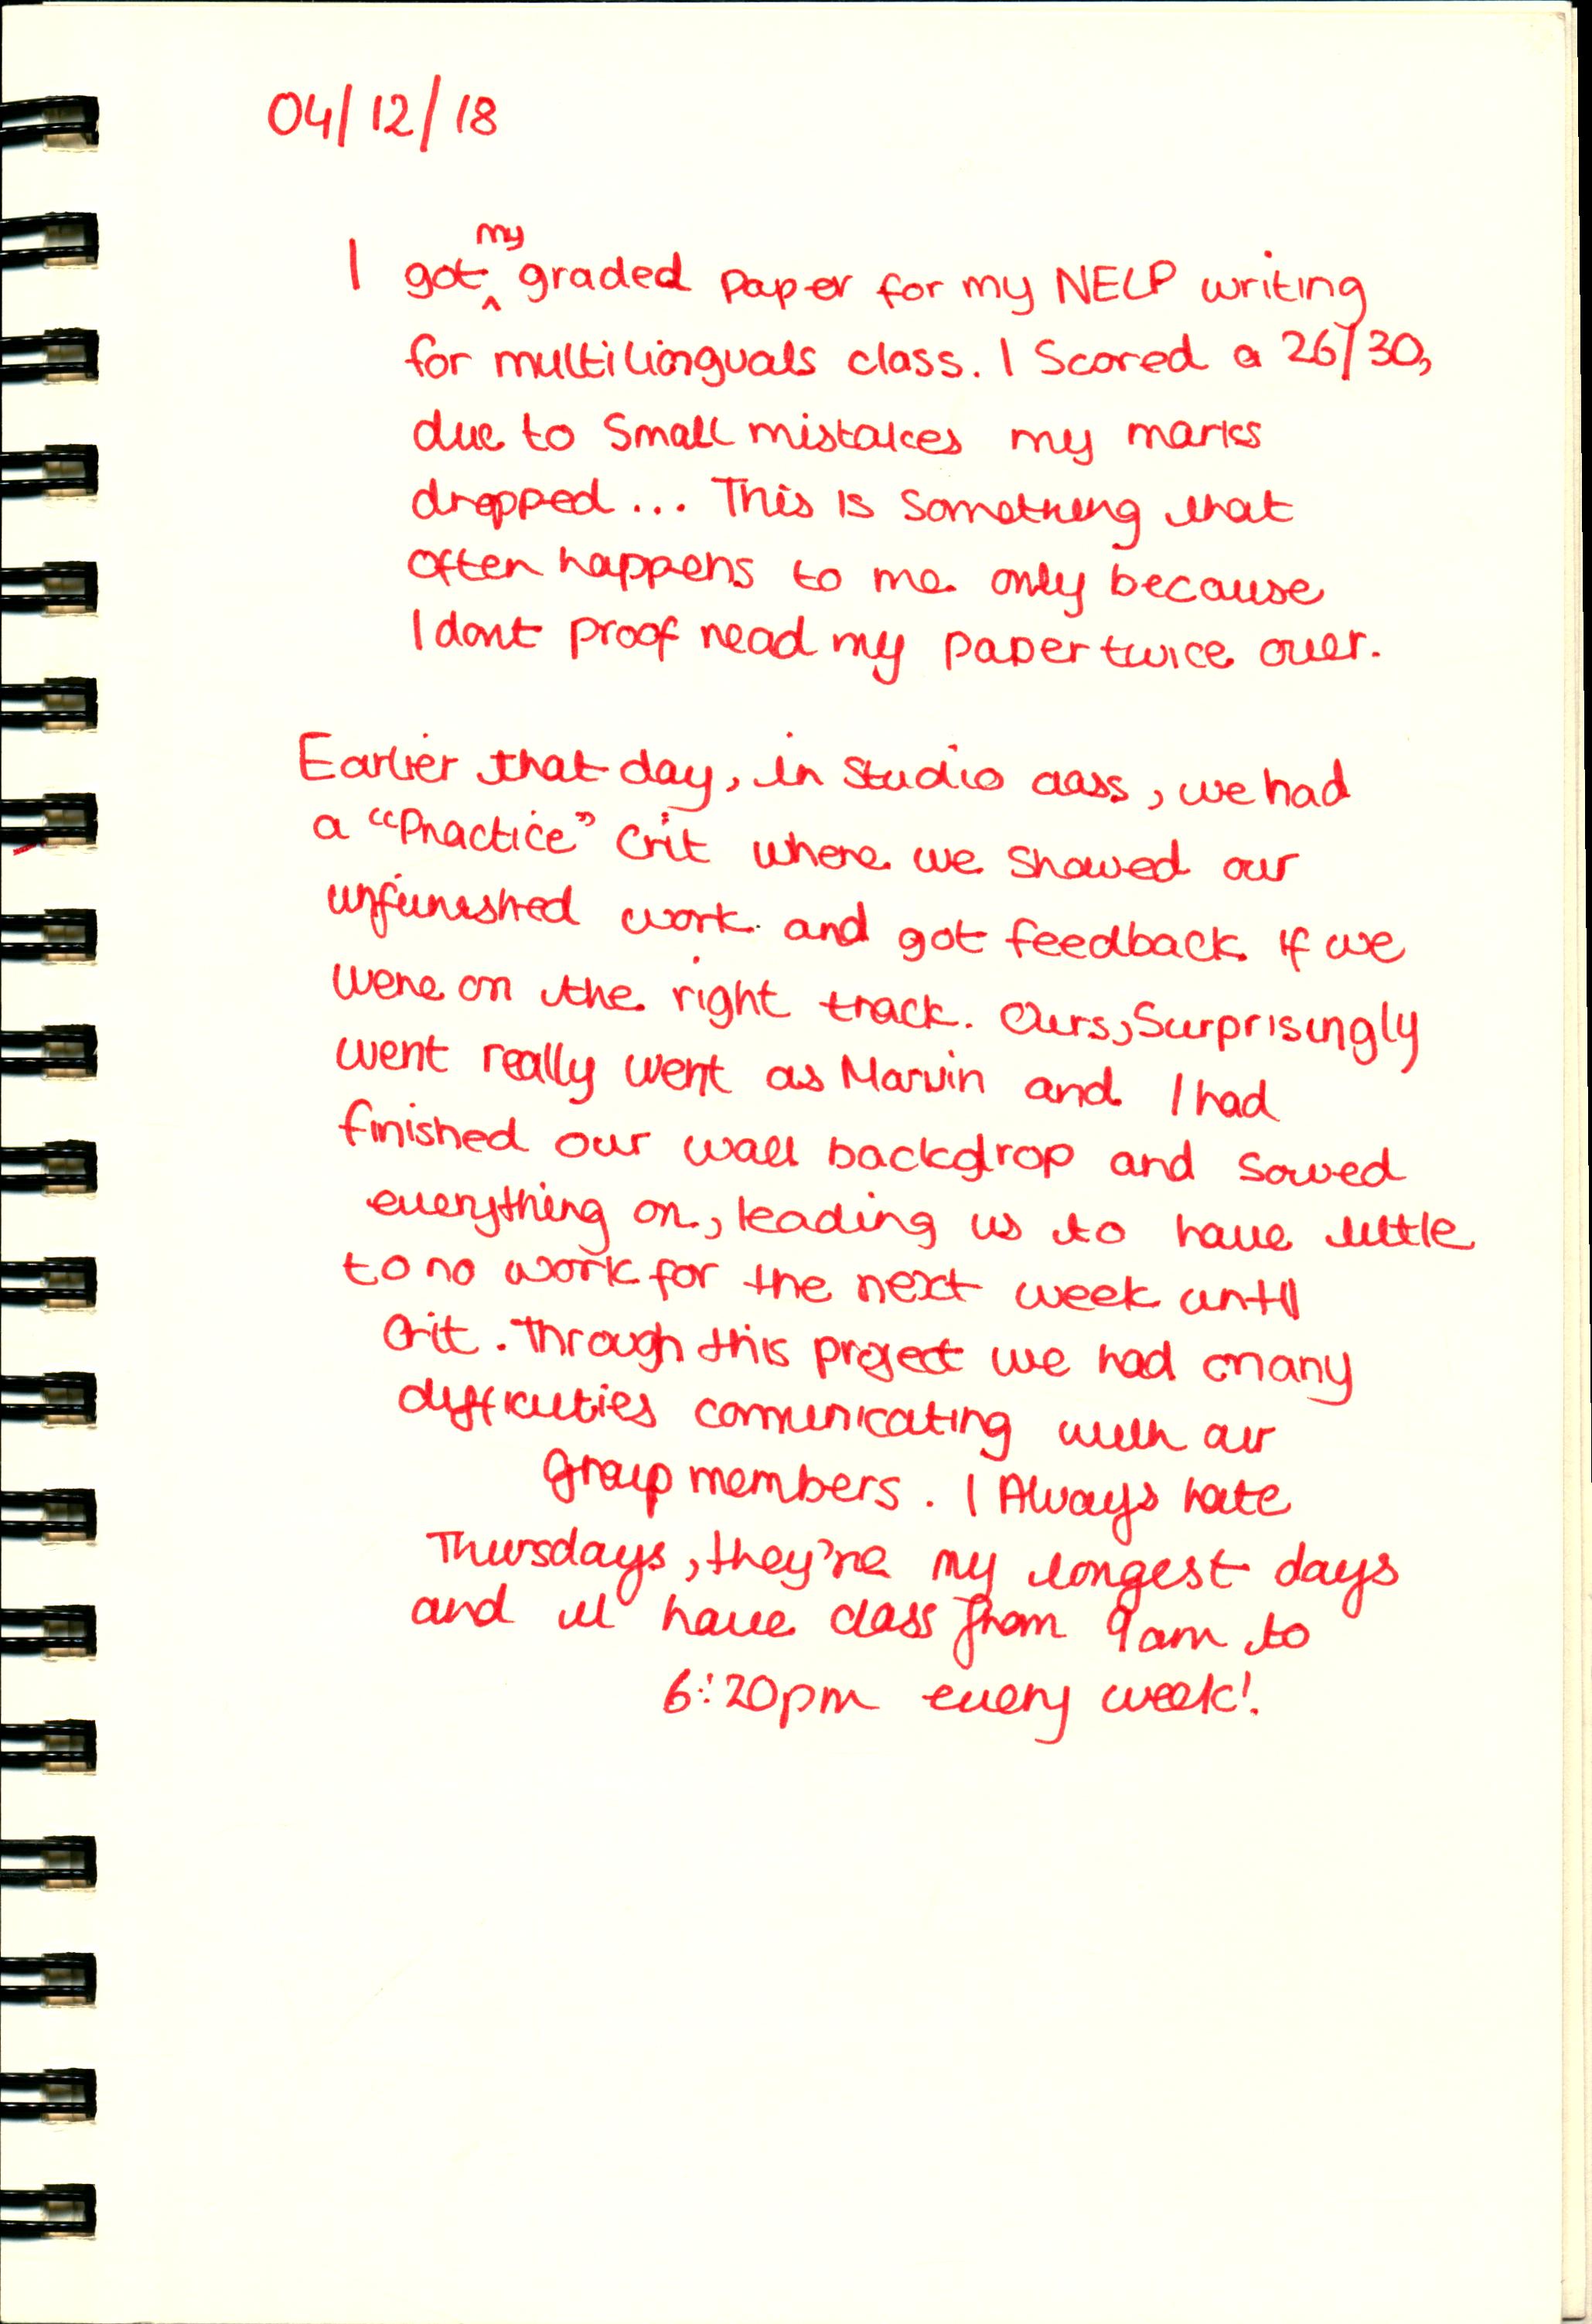 04/12/18
I got my graded paper for my NELP writing
for multilinguals class. I Scored a 26/30,
due to Small mistakes my marks
dropped... This is Something that
often happens to me only because
I dont proof read my paper twice over.
Earlier that day, in studio class, we had
a "Practice" Crit where we showed our
unfinished work and got feedback if we
were on the right track. Ours, Surprisingly
went really went as Marvin and I had
finished our wall backdrop and sowed
everything on, leading us to have little
to no work for the next week until
crit. Through this project we had many
difficulties comunicating with our
group members. I Always hate
Thursdays, they're my longest days
and I have class from 9am to
6:20pm every week!